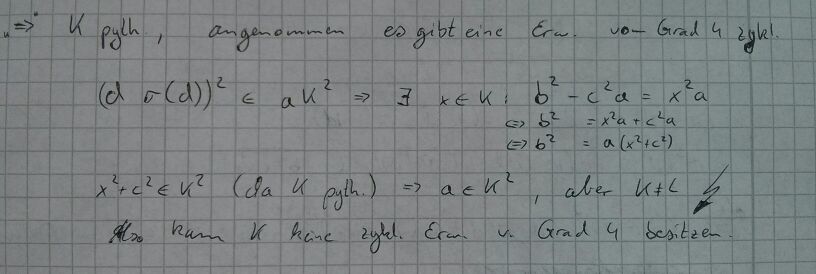 "⇒" K pyth., angenommen es gibt eine Erw. vom Grad 4 zykl.
(d σ(d))² ∈ aK² ⇒ ∃ x ∈ K : b² - c²a = x²a
⇔ b² = x²a + c²a
⇔ b² = a(x²+c²)
x²+c² ∈ K² (da K pyth.) ⇒ a ∈ K², aber K≠L ↯
Also kann K keine zykl. Erw. v. Grad 4 besitzen.